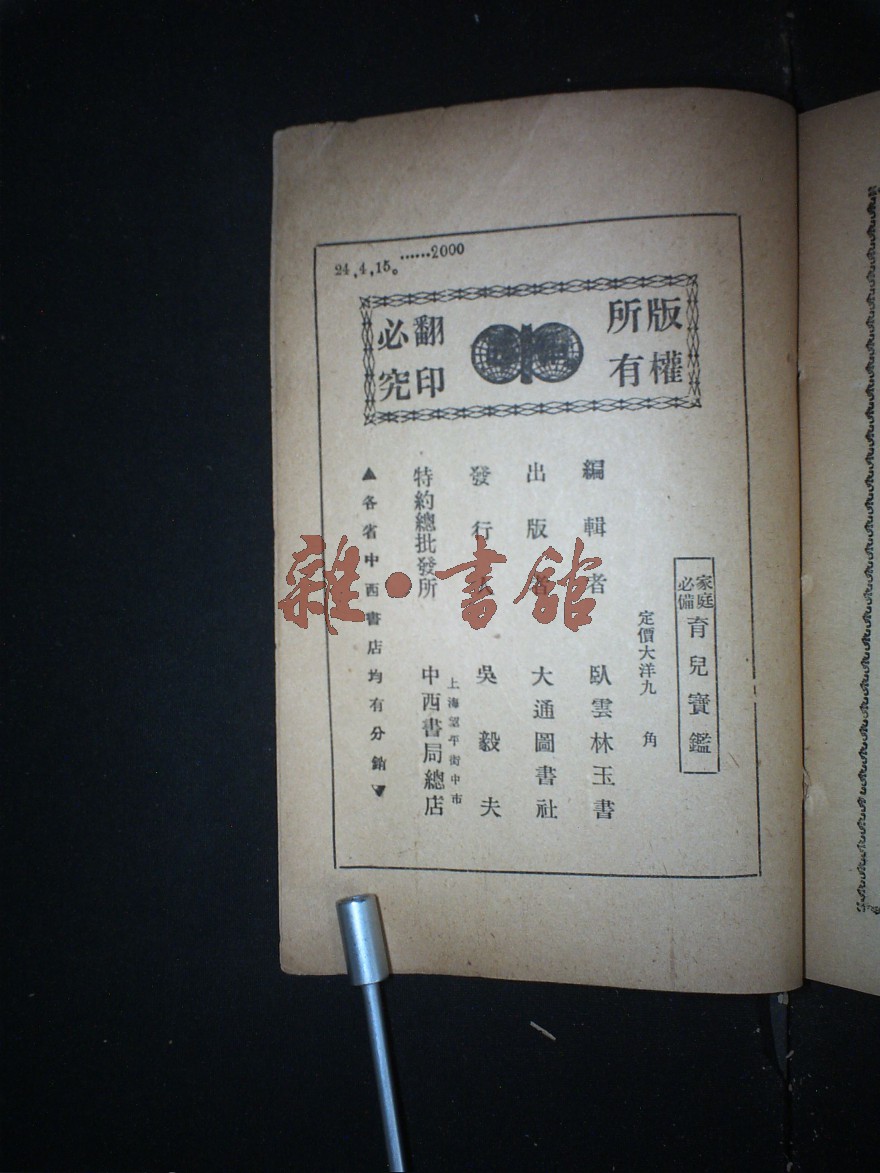 24,4,15。……2000
版權所有
翻印必究
家庭必備 育兒寶鑑
定價大洋九角
編輯者 臥雲林玉書
出版者 大通圖書社
發行人 吳毅夫
上海望平街中市
特約總批發所 中西書局總店
▲各省中西書店均有分銷▼
雜·書館